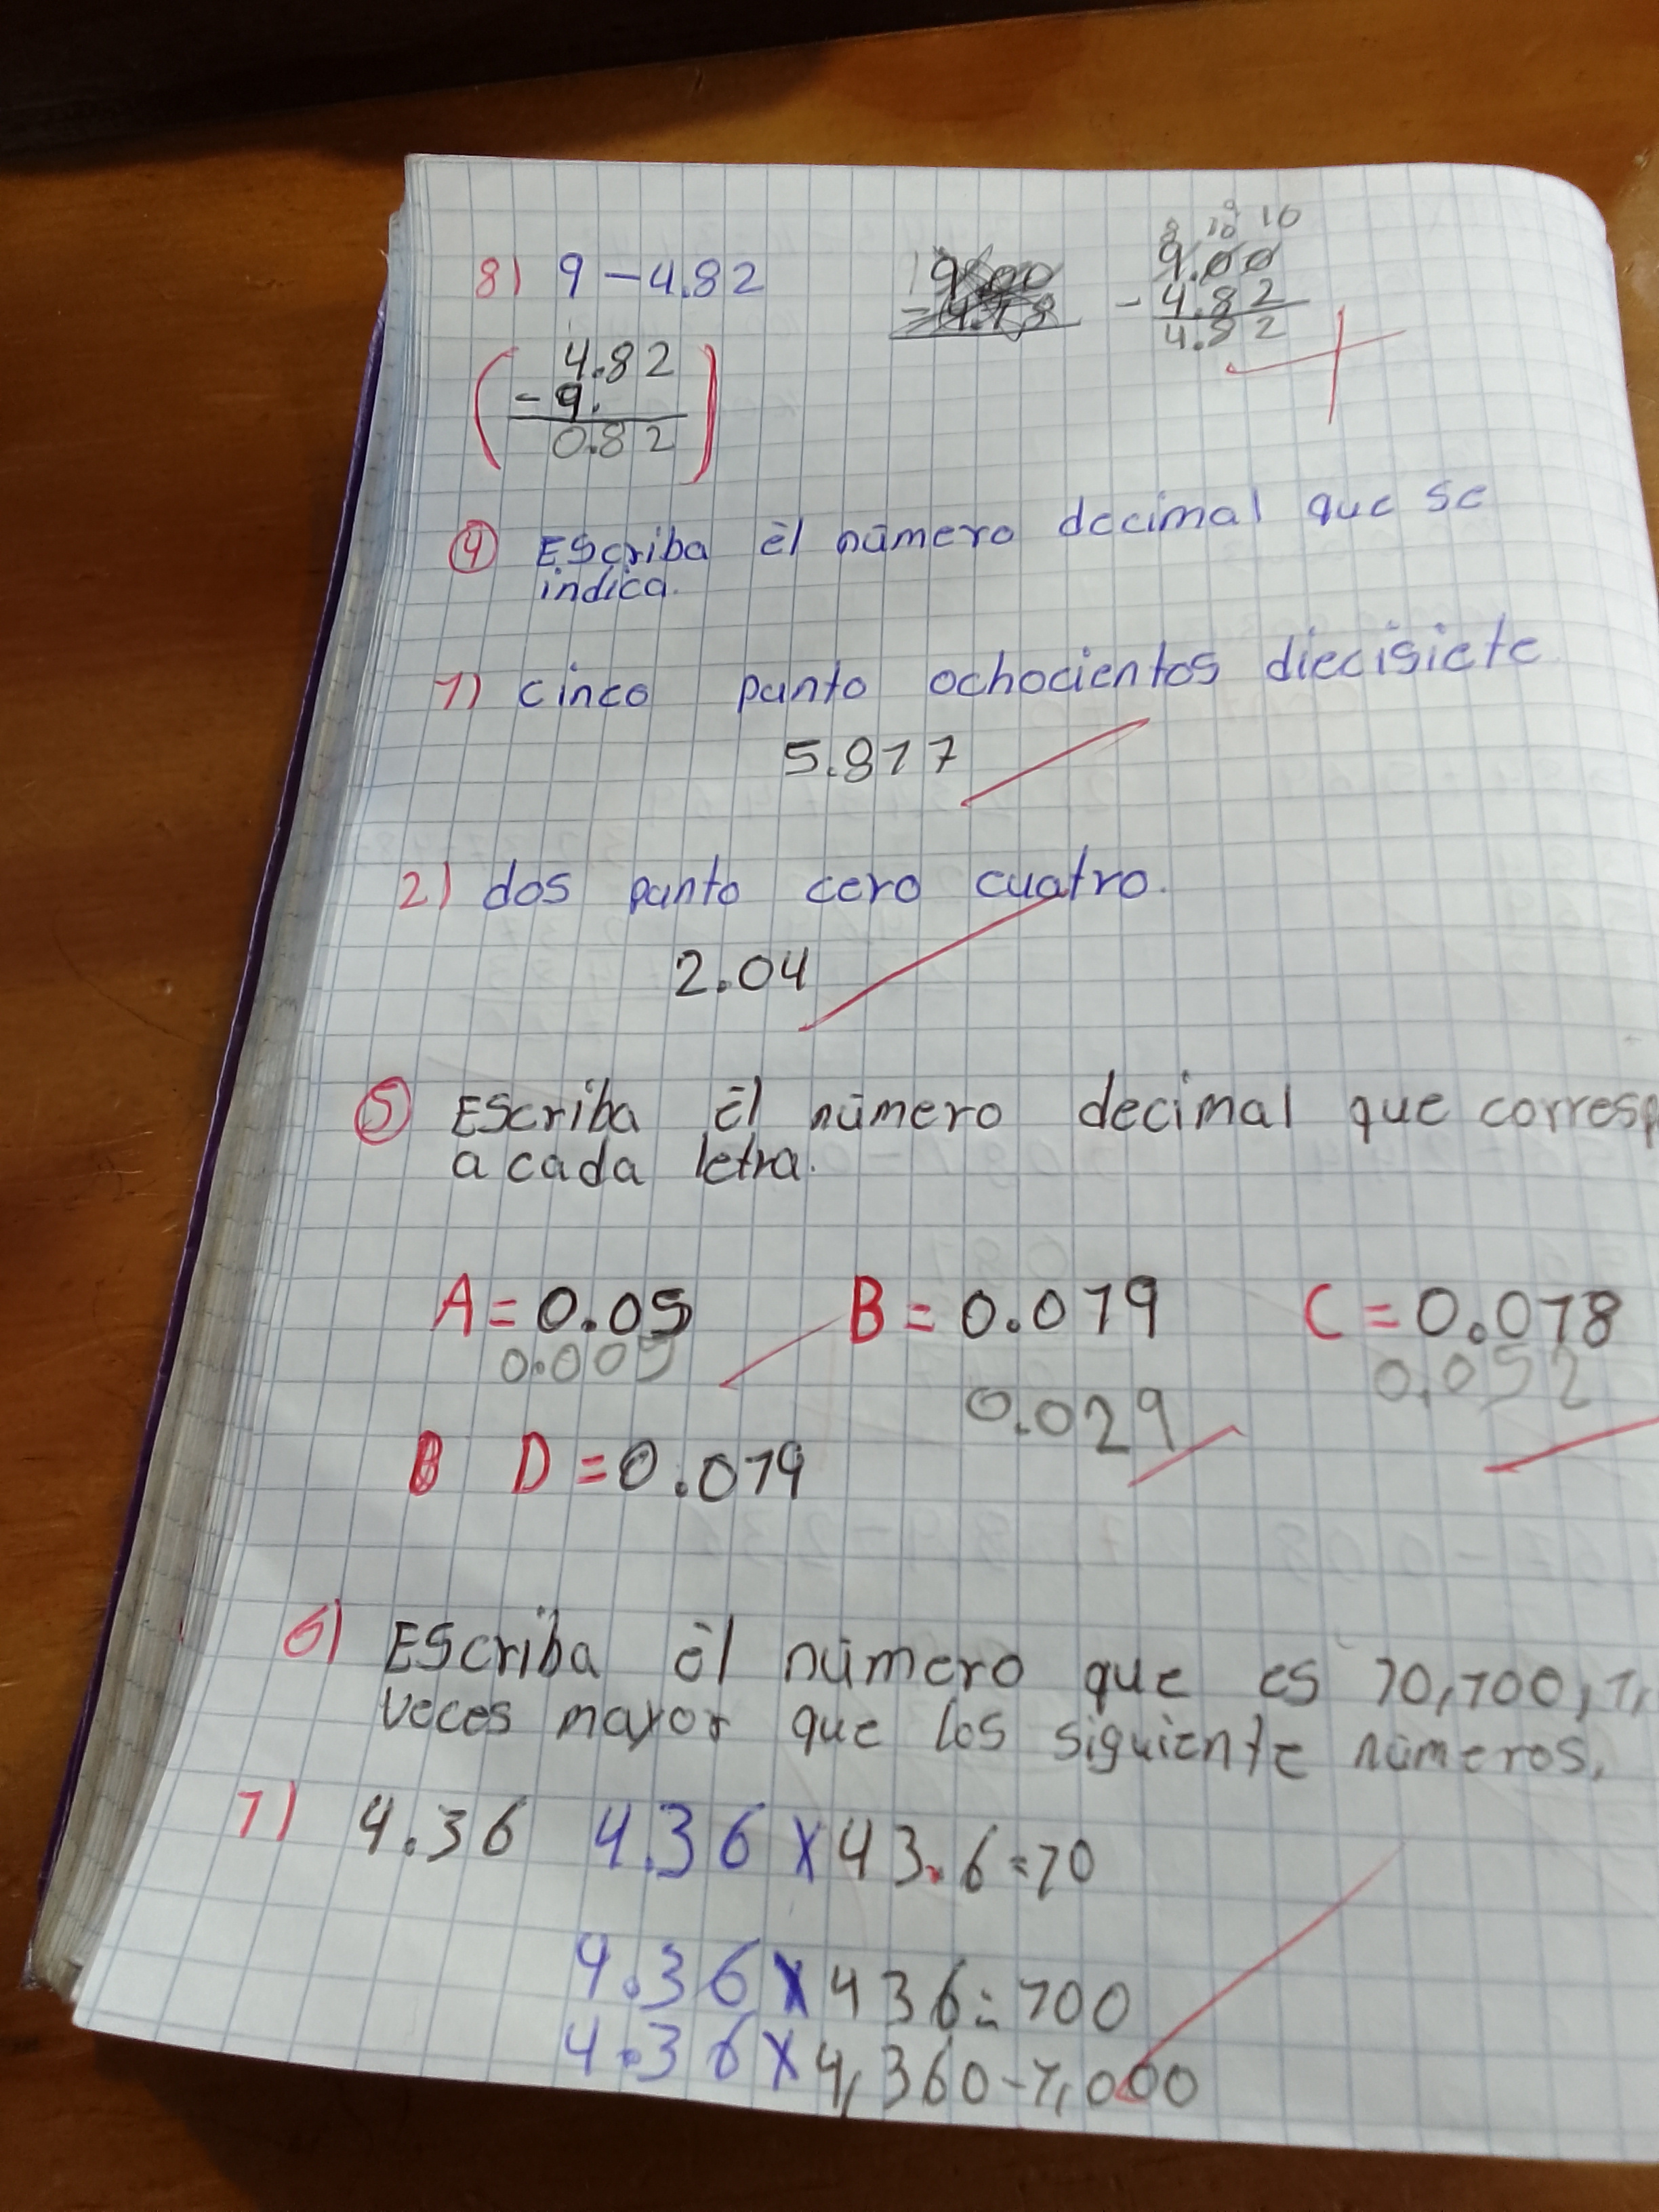 8) 9 - 4.82
9.00
8 10 9 10
9.00
- 4.82
4.82
4.82
- 9.
0.82
④ Escriba él número decimal que se
indica.
1) cinco punto ochocientos diecisiete
5.817
2) dos punto cero cuatro.
2.04
⑤ Escriba él número decimal que corresp
a cada letra.
A = 0.05 B = 0.019 C = 0.018
0.005 0.029 0.052
B D = 0.019
6) Escriba él número que es 10, 100, 1,
veces mayor que los siguiente números.
1) 4.36 4.36 x 43.6 = 10
4.36 x 436 = 100
4.36 x 4,360 - 1,000